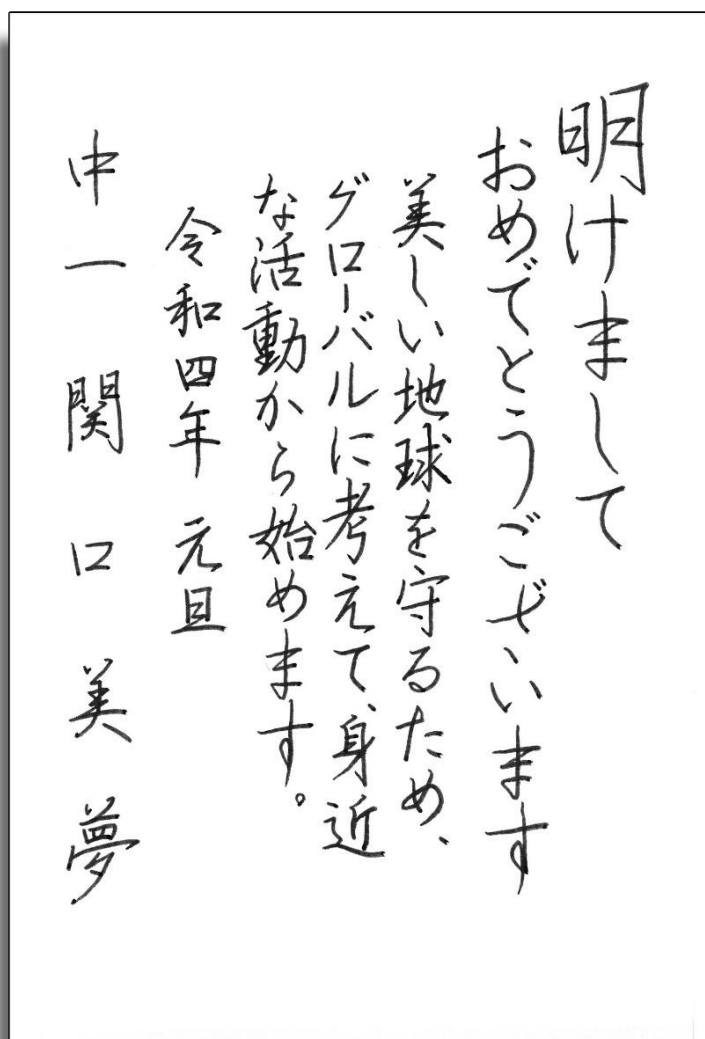 明けまして
おめでとうございます
美しい地球を守るため、
グローバルに考えて、身近
な活動から始めます。
令和四年 元旦
中一 関口美夢